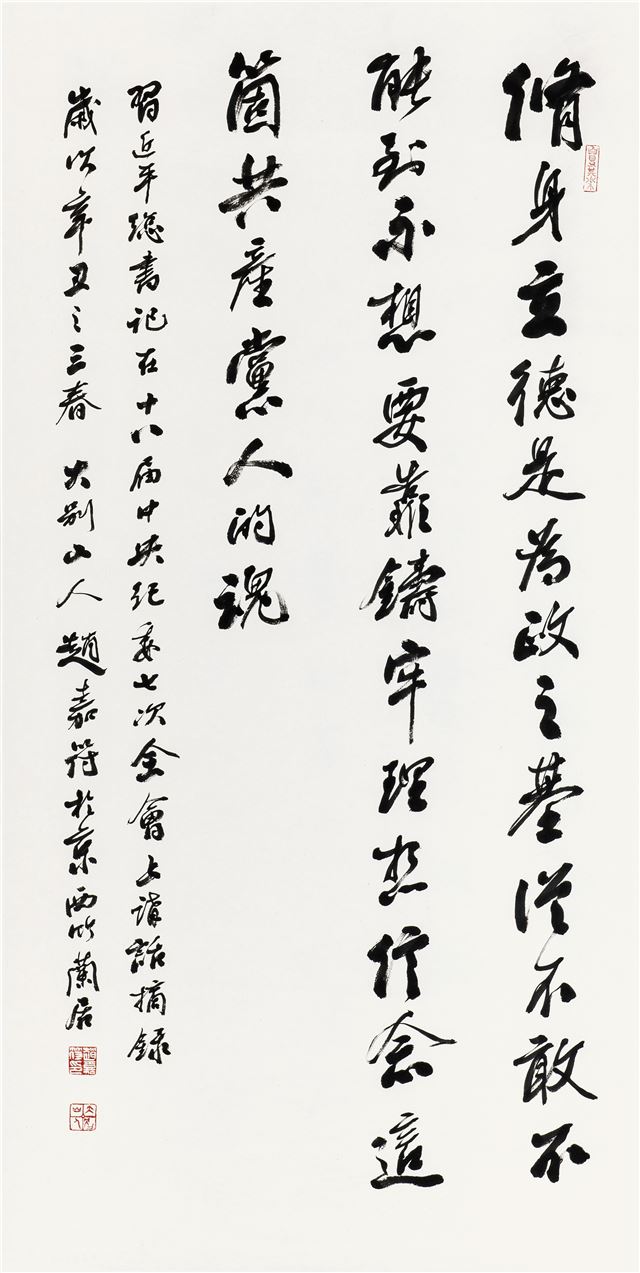 脩身立德是為政之基從不敢不
能到不想要靠鑄牢理想信念這
箇共產黨人的魂
習近平總書記在十八屆中央紀委七次全會上講話摘錄
歲次辛丑之三春 大別山人趙嘉符於京西竹蘭居
趙嘉符印
大別山人